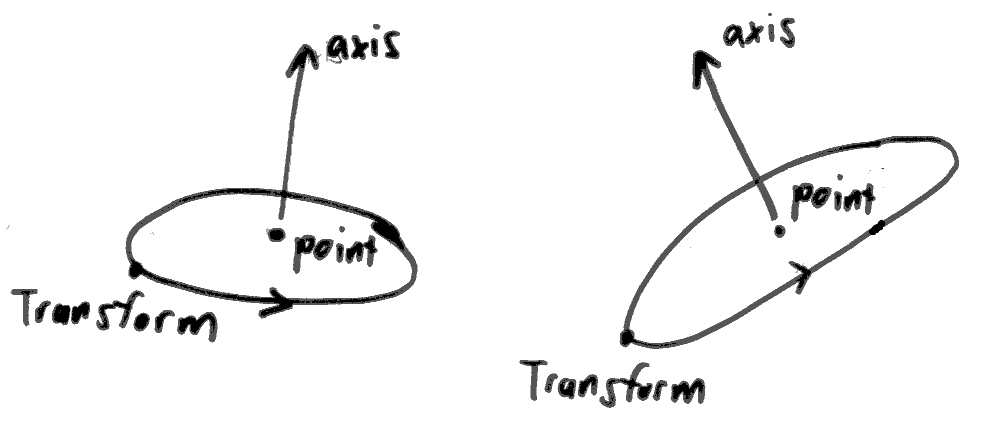 axis
point
Transform
axis
point
Transform